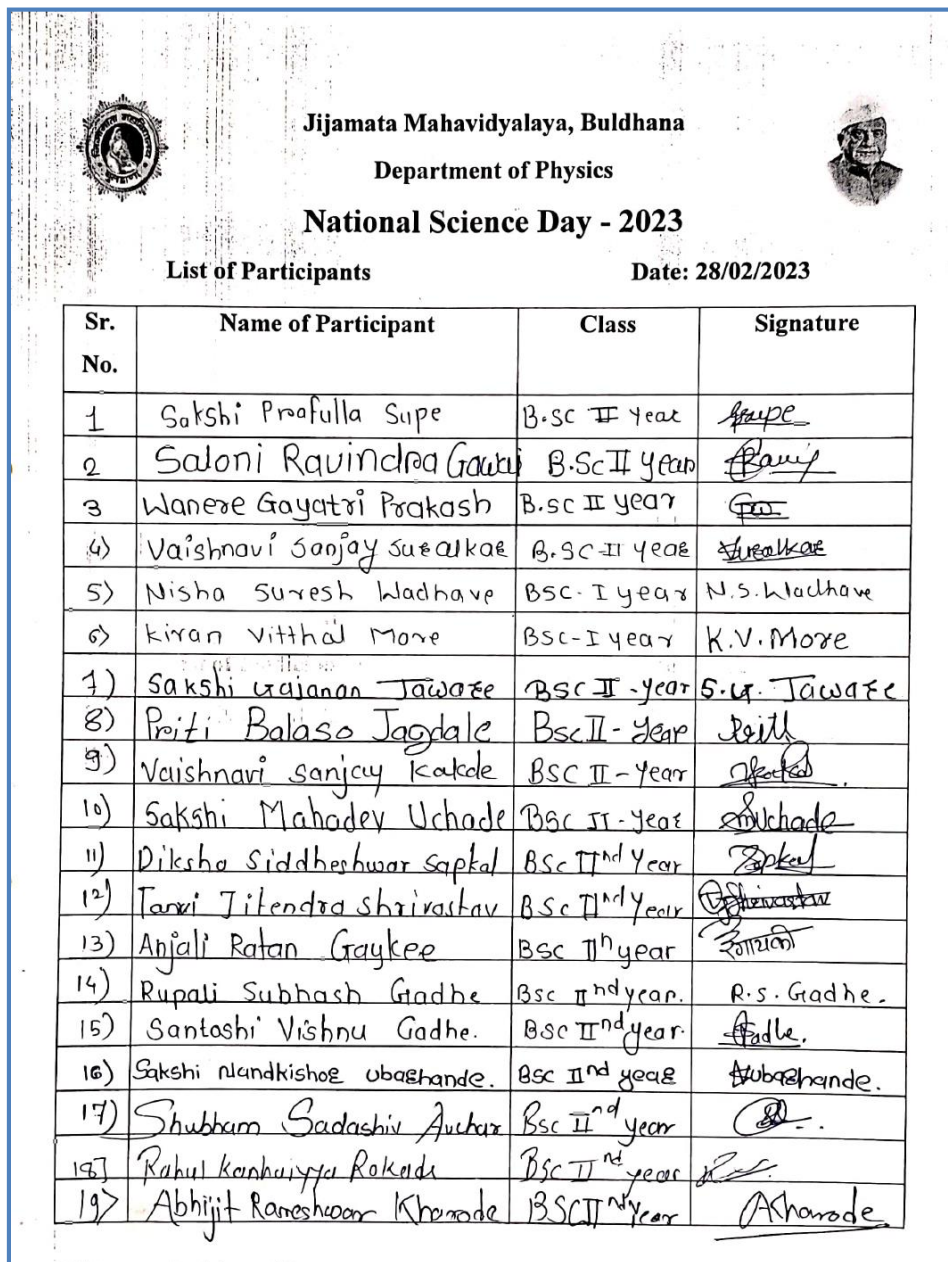 Jijamata Mahavidyalaya, Buldhana
Department of Physics
National Science Day - 2023
List of Participants Date: 28/02/2023
Sr. No. Name of Participant Class Signature
1 Sakshi Proafulla Supe B.sc II Year
2 Saloni Ravindra Gawai B.Sc II year
3 Wanere Gayatri Prakash B.sc II year
4) Vaishnavi Sanjay Suralkar B.SC-II year Suralkar
5) Nisha Suresh Wadhave BSC-I year N.S.Wadhave
6) Kiran Vitthal More BSC-I year K.V.More
7) Sakshi Gajanan Taware BSC II -year S.G. Taware
8) Priti Balaso Jagdale Bsc II - Year Priti
9) Vaishnavi Sanjay Kakde BSC II - Year
10) Sakshi Mahadev Uchade BSC II-Year Suchade
11) Diksha Siddheshwar Sapkal BSc IInd Year Sapkal
12) Tanvi Jitendra Shrivastav BSc IInd Year Shrivastav
13) Anjali Ratan Gaykee BSC IIn year
14) Rupali Subhash Gadhe Bsc IInd year. R.S. Gadhe.
15) Santoshi Vishnu Gadhe. BSC IInd year. Gadhe.
16) Sakshi Nandkishor Ubarhande. BSC IInd year Subarhande.
17) Shubham Sadashiv Auchar Bsc IInd year
18] Rahul Kanhaiyya Rokade BSC IInd year
19) Abhijit Rameshwar Kharode BSC IInd Year AKharode